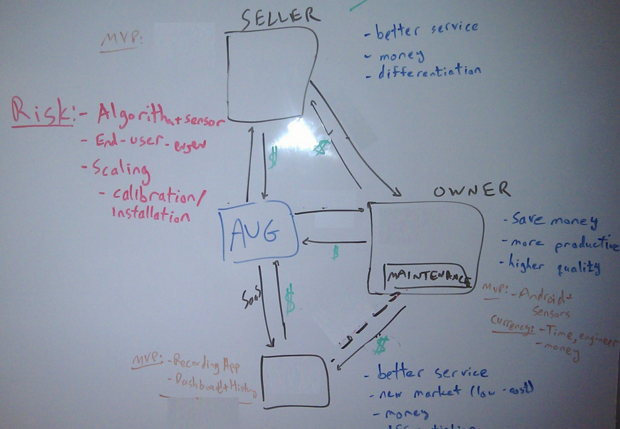 SELLER
MVP:
- better service
- money
- differentiation
Risk:- Algorithm+sensor
- End-user-
- Scaling
- calibration/
installation
$
$
OWNER
AUG
$
MAINTENANCE
- save money
- more productive
- higher quality
MVP:- Android+
sensors
Currency:- Time, engineer
- money
SaaS
$
$
MVP:- Recording App
- Dashboard+History
- better service
- new market (low-cost)
- money
- differentiation